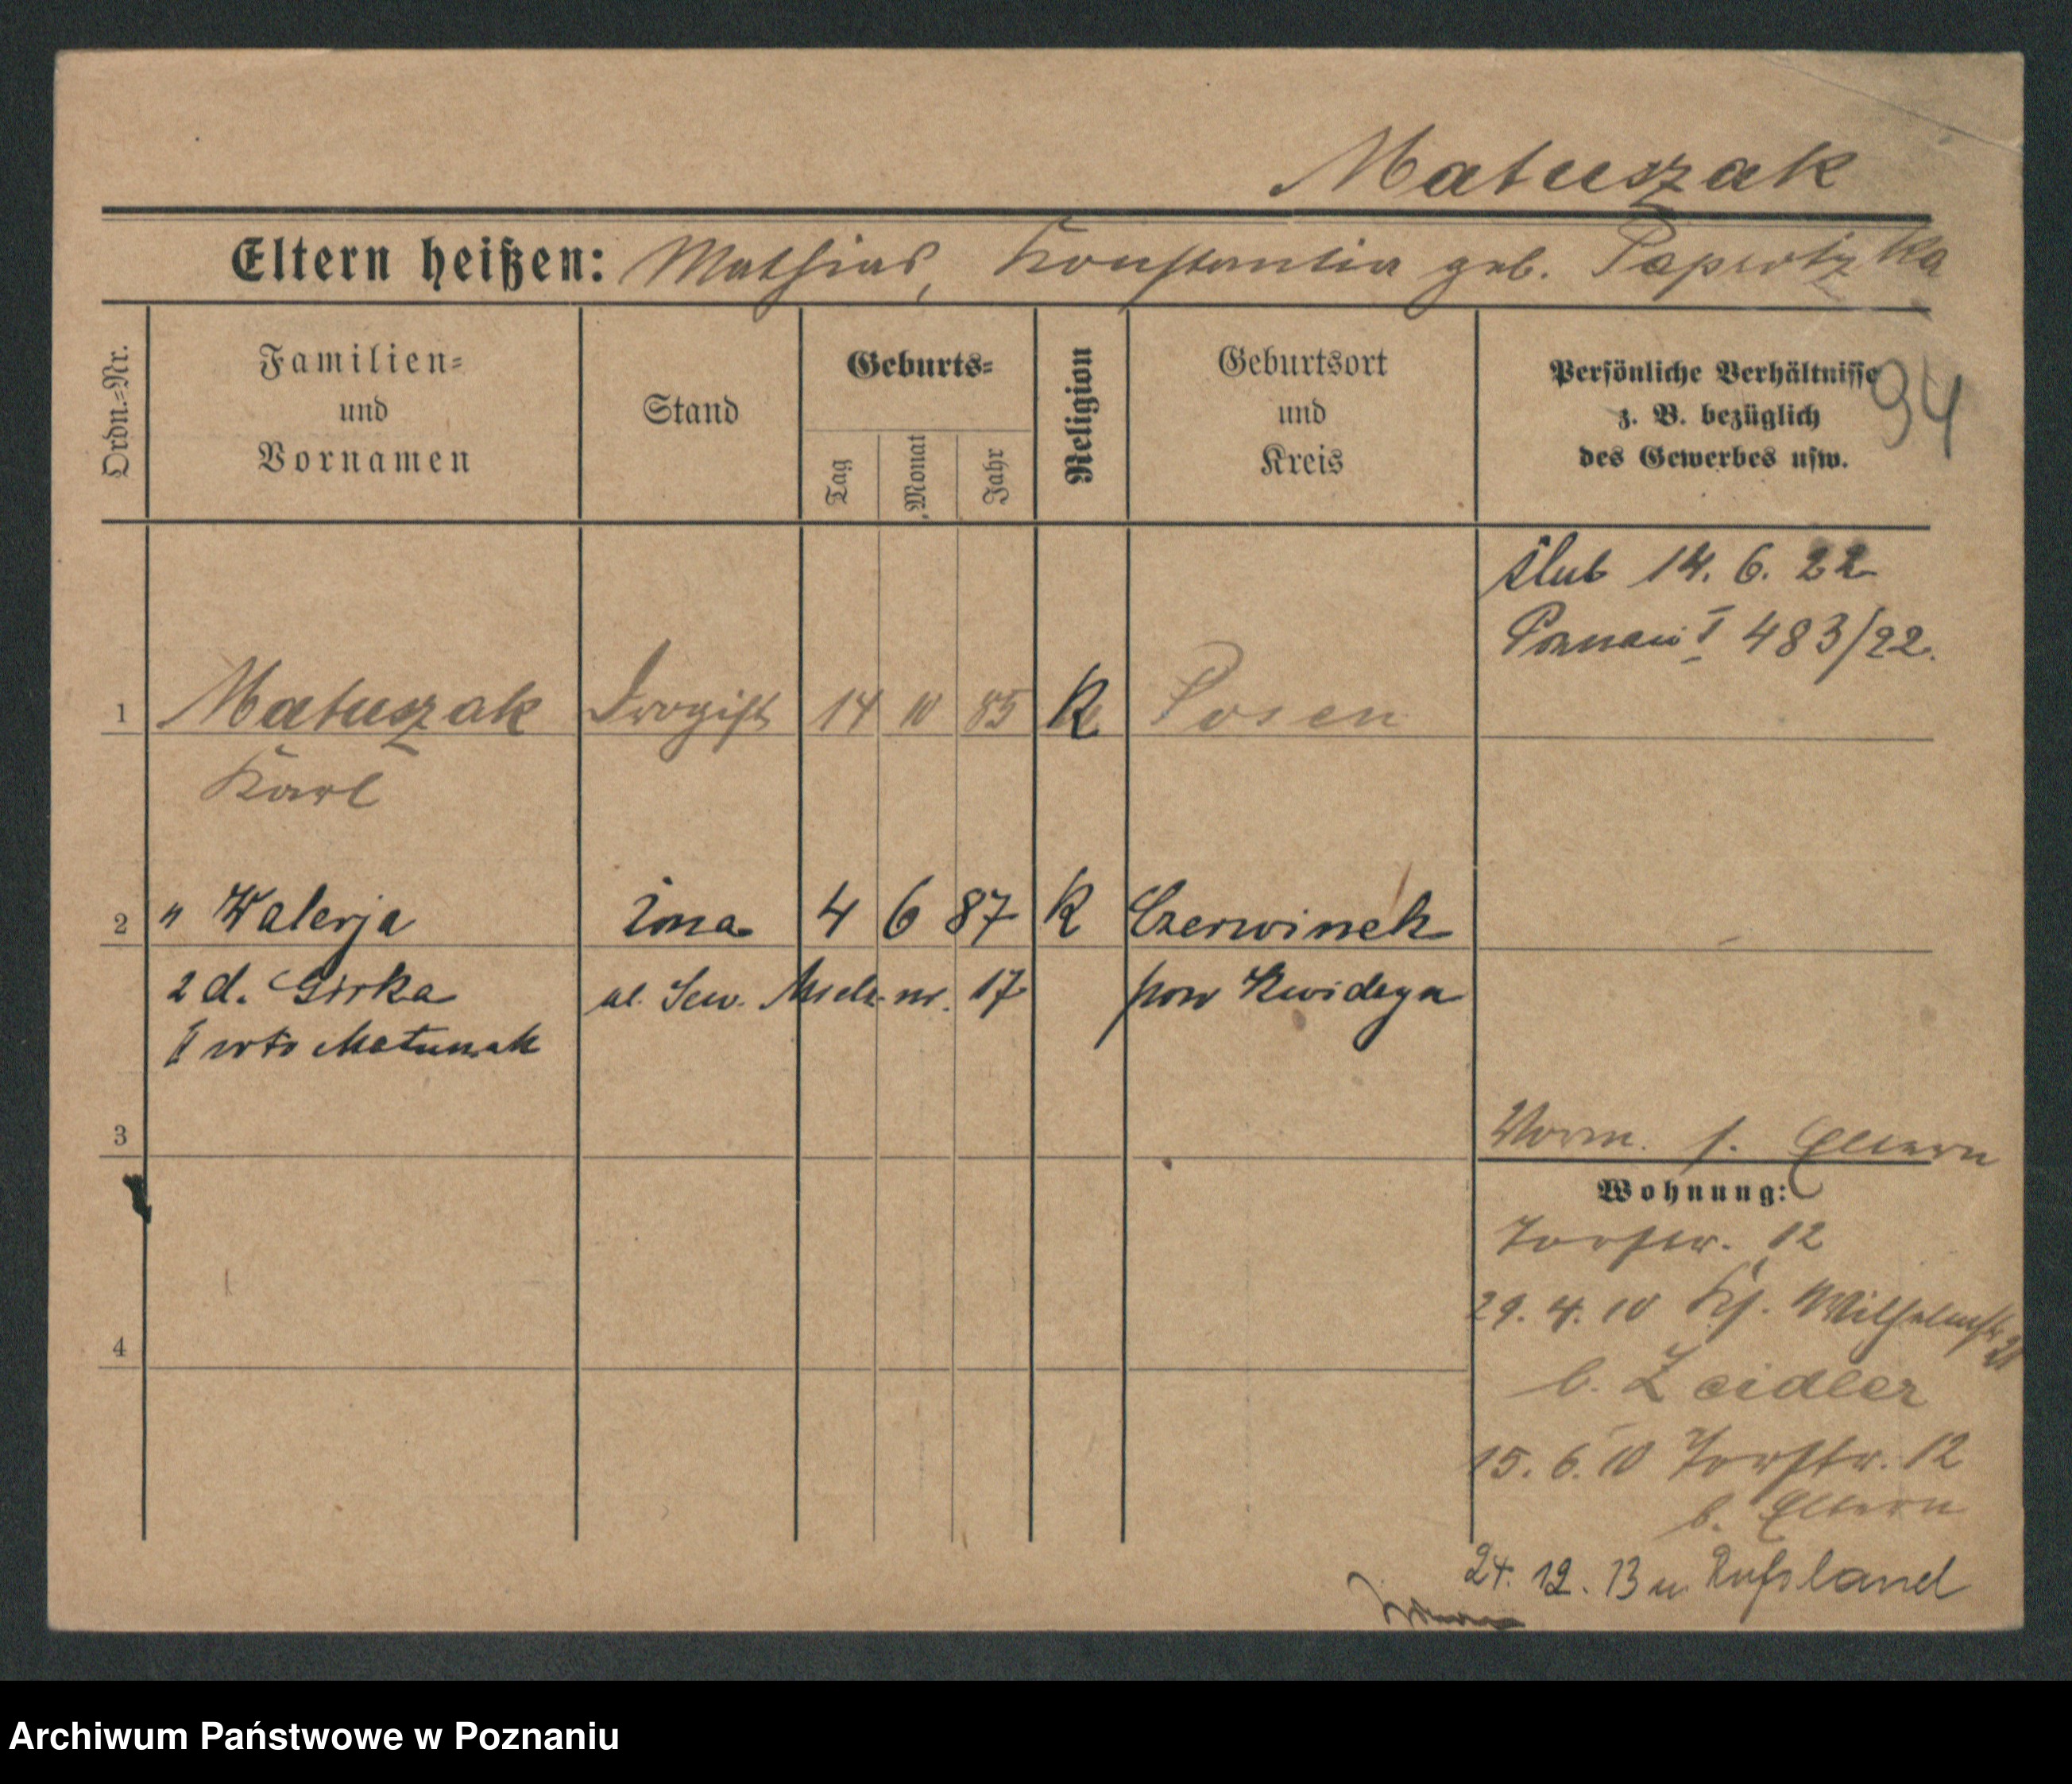 Matuszak
Eltern heißen: Mathias, Konstantia geb. Paprotzka
Ordn.=Nr.
Familien=
und
Vornamen
Stand
Geburts=
Tag
Monat
Jahr
Religion
Geburtsort
und
Kreis
Persönliche Verhältnisse
z. B. bezüglich
des Gewerbes usw.
94
ślub 14. 6. 22
Poznań I 483/22.
1 Matuszak Drogist 14 10 85 K Posen
Karl
2 " Walerja żona 4 6 87 K Czerwinek
2 d. Girka ul. Sew. Mielż. nr. 17 pow Kwidzyn
Matuszak
3
Vorm. s. Eltern
Wohnung:
Torstr. 12
29. 4. 10 Wilhelmstr.
4
b. Zeidler
15. 6. 10 Torstr. 12
b. Eltern
24. 12. 13 n. Rußland
Archiwum Państwowe w Poznaniu